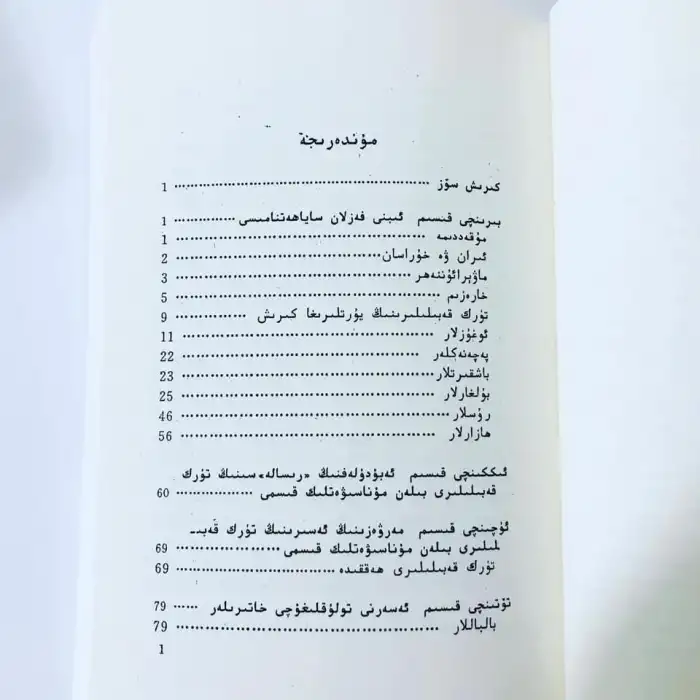 مۇندەرىجە
كىرىش سۆز ........................ 1
بىرىنچى قىسىم ئىبنى فەزلان ساياھەتنامىسى ............... 1
مۇقەددىمە ........................ 1
ئىران ۋە خۇراسان ........................ 2
ماۋېرائۇننەھر ........................ 3
خارەزىم ........................ 5
تۈرك قەبىلىلىرىنىڭ يۇرتلىرىغا كىرىش ............ 9
ئوغۇزلار ........................ 11
پەچەنەكلەر ........................ 22
باشقىرتلار ........................ 23
بۇلغارلار ........................ 25
رۇسلار ........................ 46
ھازارلار ........................ 56
ئىككىنچى قىسىم ئەبۇدۇلەفنىڭ «رىسالە»سىنىڭ تۈرك
قەبىلىلىرى بىلەن مۇناسىۋەتلىك قىسمى .................. 60
ئۈچىنچى قىسىم مەرۋەزىنىڭ ئەسىرىنىڭ تۈرك قەبى—
لىلىرى بىلەن مۇناسىۋەتلىك قىسمى ..................... 69
تۈرك قەبىلىلىرى ھەققىدە ........................ 69
تۆتىنچى قىسىم ئەسەرنى تولۇقلىغۇچى خاتىرىلەر ...... 79
بالباللار ........................ 79
1